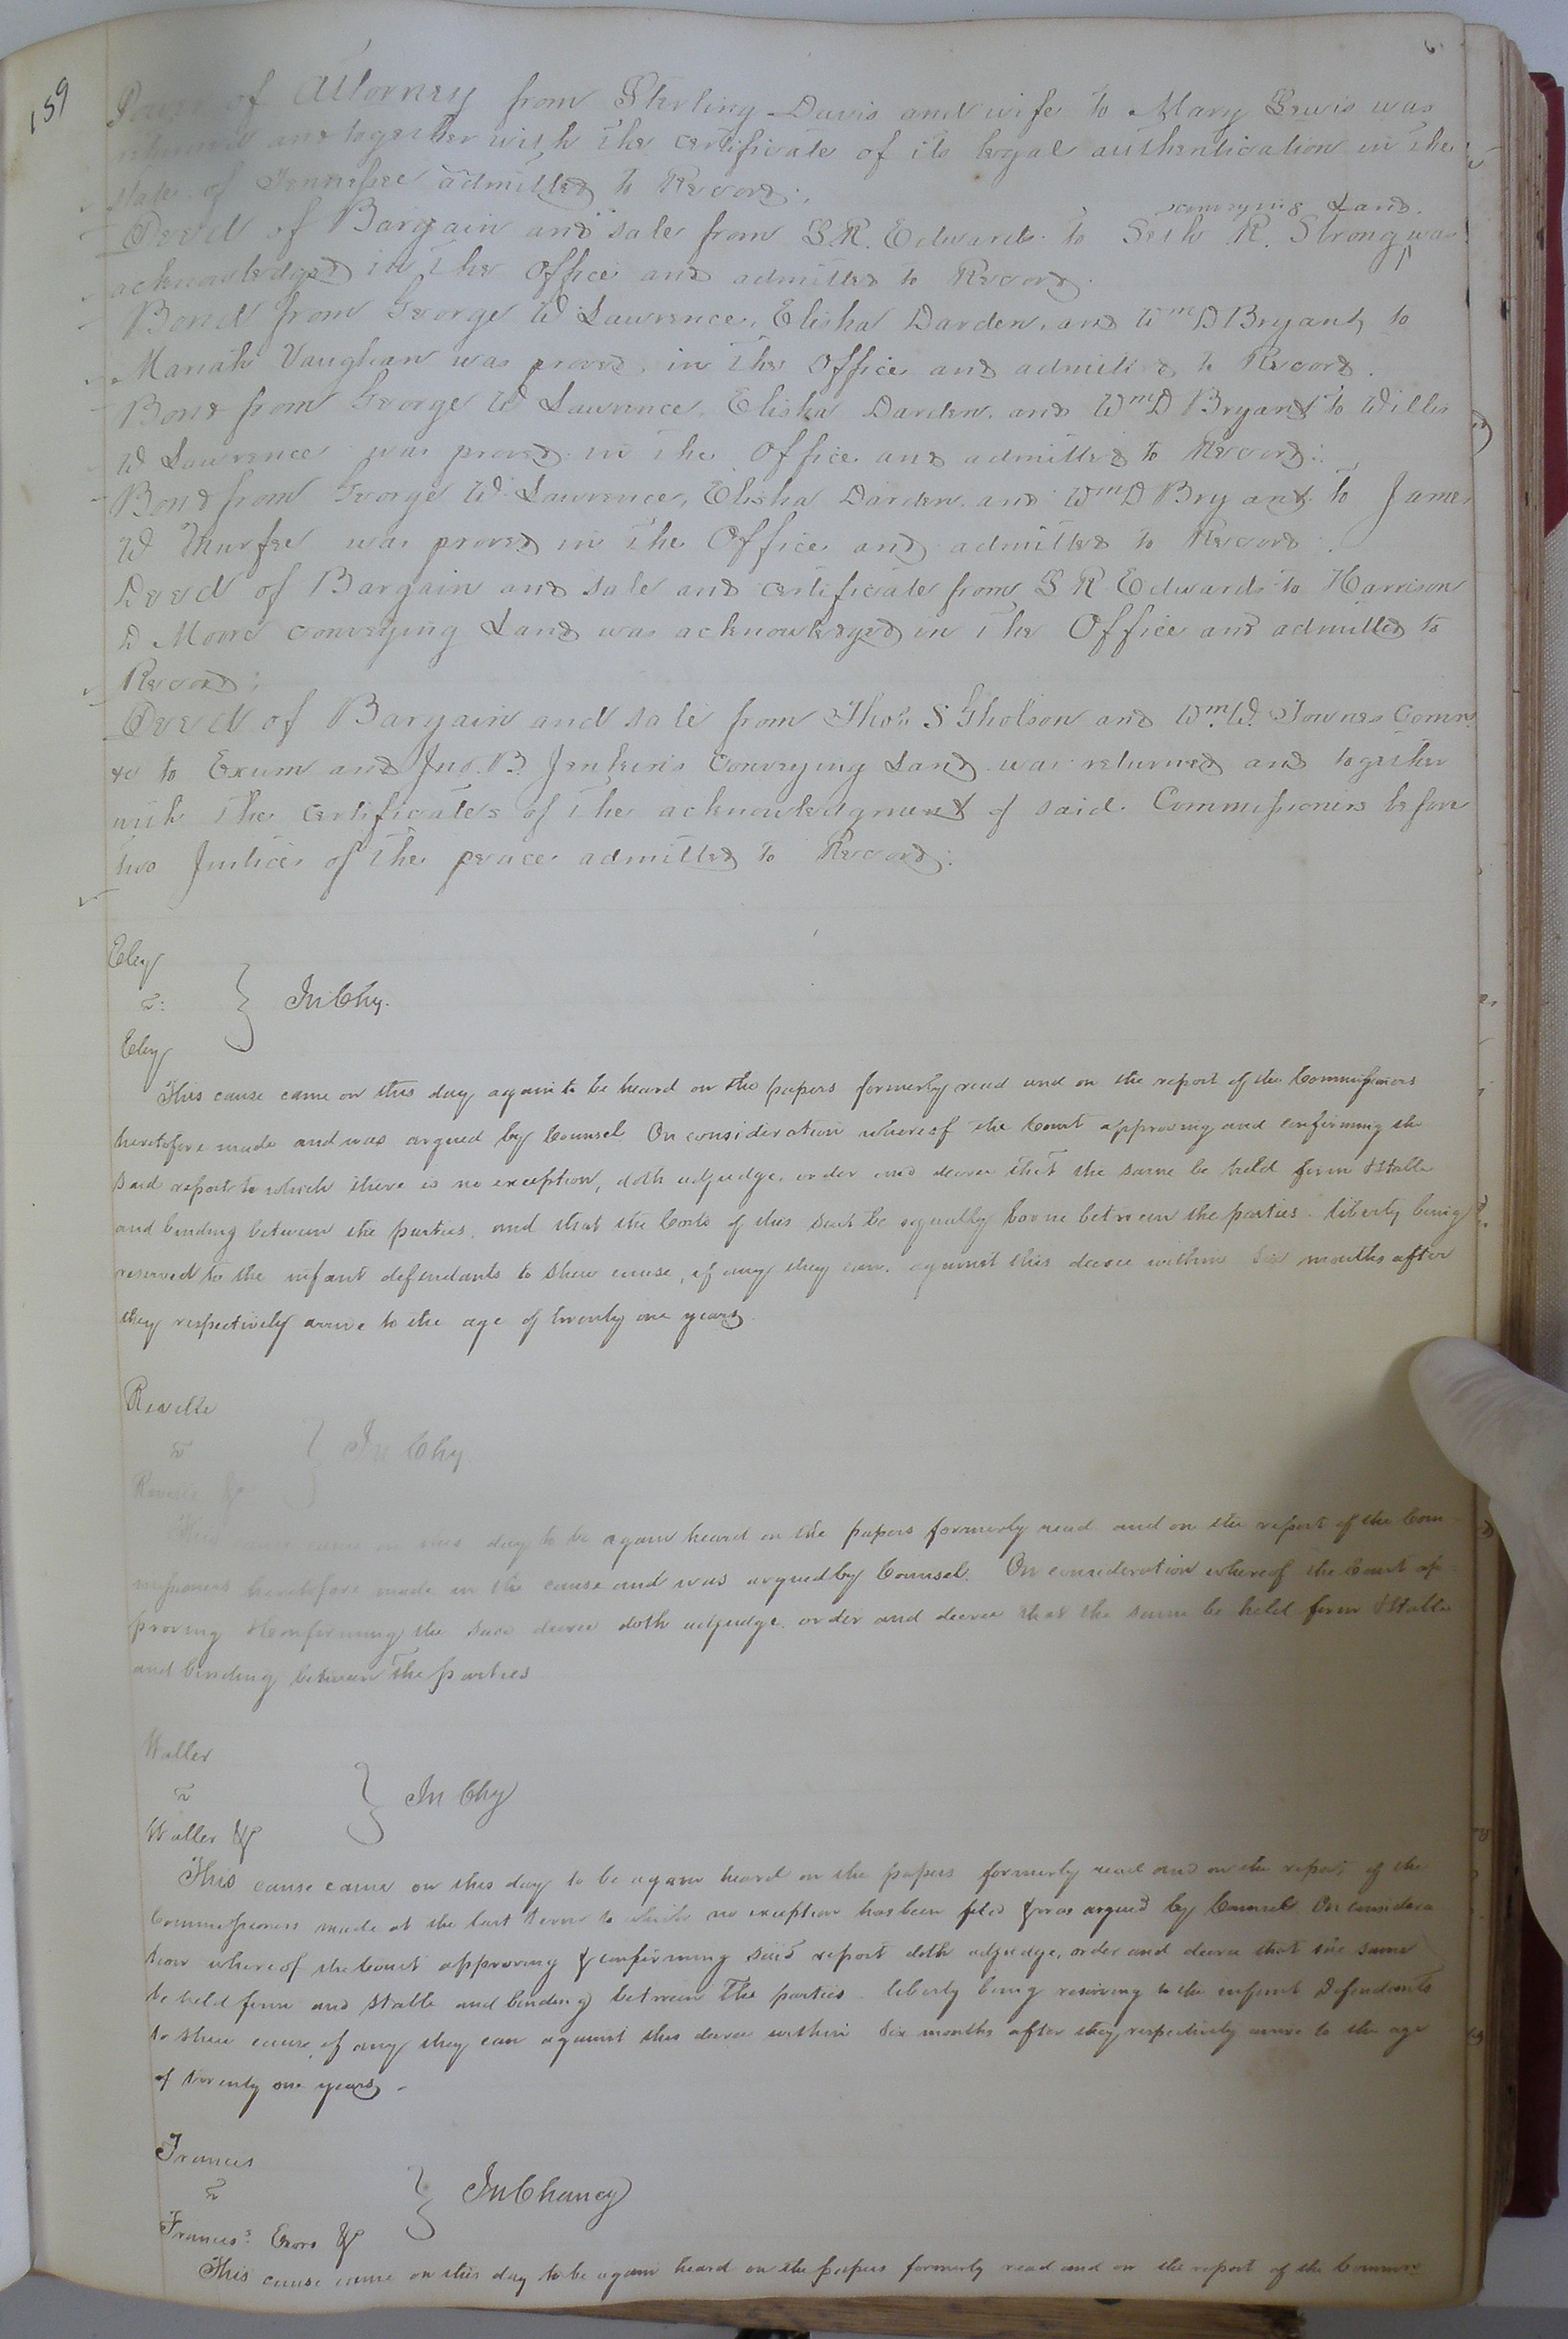 159
Power of Attorney from Sterling Davis and wife to Mary Lewis was
returned and together with the certificate of its legal authentication in the
state of Tennessee admitted to Record.
conveying Land.
Deed of Bargain and sale from S R. Edwards to Seth R. Strong was
acknowledged in the Office and admitted to Record.
Bond from George W Lawrence, Elisha Darden, and Wm D Bryant, to
Mariah Vaughan was proved in the Office and admitted to Record.
Bond from George W Lawrence, Elisha Darden, and Wm D Bryant to Willis
W Lawrence was proved in the Office and admitted to Record.
Bond from George W. Lawrence, Elisha Darden, and Wm D Bryant to James
W Murfee was proved in the Office and admitted to Record.
Deed of Bargain and sale and certificate from S R Edwards to Harrison
D Moore conveying Land was acknowledged in the Office and admitted to
Record;
Deed of Bargain and sale from Thos S Gholson and Wm. W. Townes Comrs
&c to Exum and Jno. B. Jenkins Conveying Land was returned and together
with the certificates of the acknowledgment of said Commissioners before
two Justices of the peace admitted to Record.
Eley
v:
Eley
} In Chy.
This cause came on this day again to be heard on the papers formerly read and on the report of the Commissioners
heretofore made and was argued by Counsel On consideration whereof the Court approving and confirming the
said report to which there is no exception, doth adjudge, order and decree that the same be held firm & stable
and binding between the parties, and that the Costs of this suit be equally borne between the parties. liberty being
reserved to the infant defendants to shew cause, if any they can, against this decree within six months after
they respectively arrive to the age of twenty one years.
Revelle
v
Revelle &
} In Chy
This cause came on this day to be again heard on the papers formerly read and on the report of the Com
missioners heretofore made in the cause and was argued by Counsel. On consideration whereof the Court ap
proving & confirming the said decree doth adjudge, order and decree that the same be held firm & stable
and binding between the parties
Waller
v
Waller &
} In Chy
This cause came on this day to be again heard on the papers formerly read and on the report of the
Commissioners made at the last term to which no exception has been filed & was argued by Counsel On considera
tion whereof the Court approving & confirming said report doth adjudge, order and decree that the same
be held firm and stable and binding between the parties. liberty being reserving to the infant Defendants
to shew cause, if any they can against this decree within six months after they respectively arrive to the age
of twenty one years.
Francis
v
Francis' Exors &
} In Chancy
This cause came on this day to be again heard on the papers formerly read and on the report of the Commrs